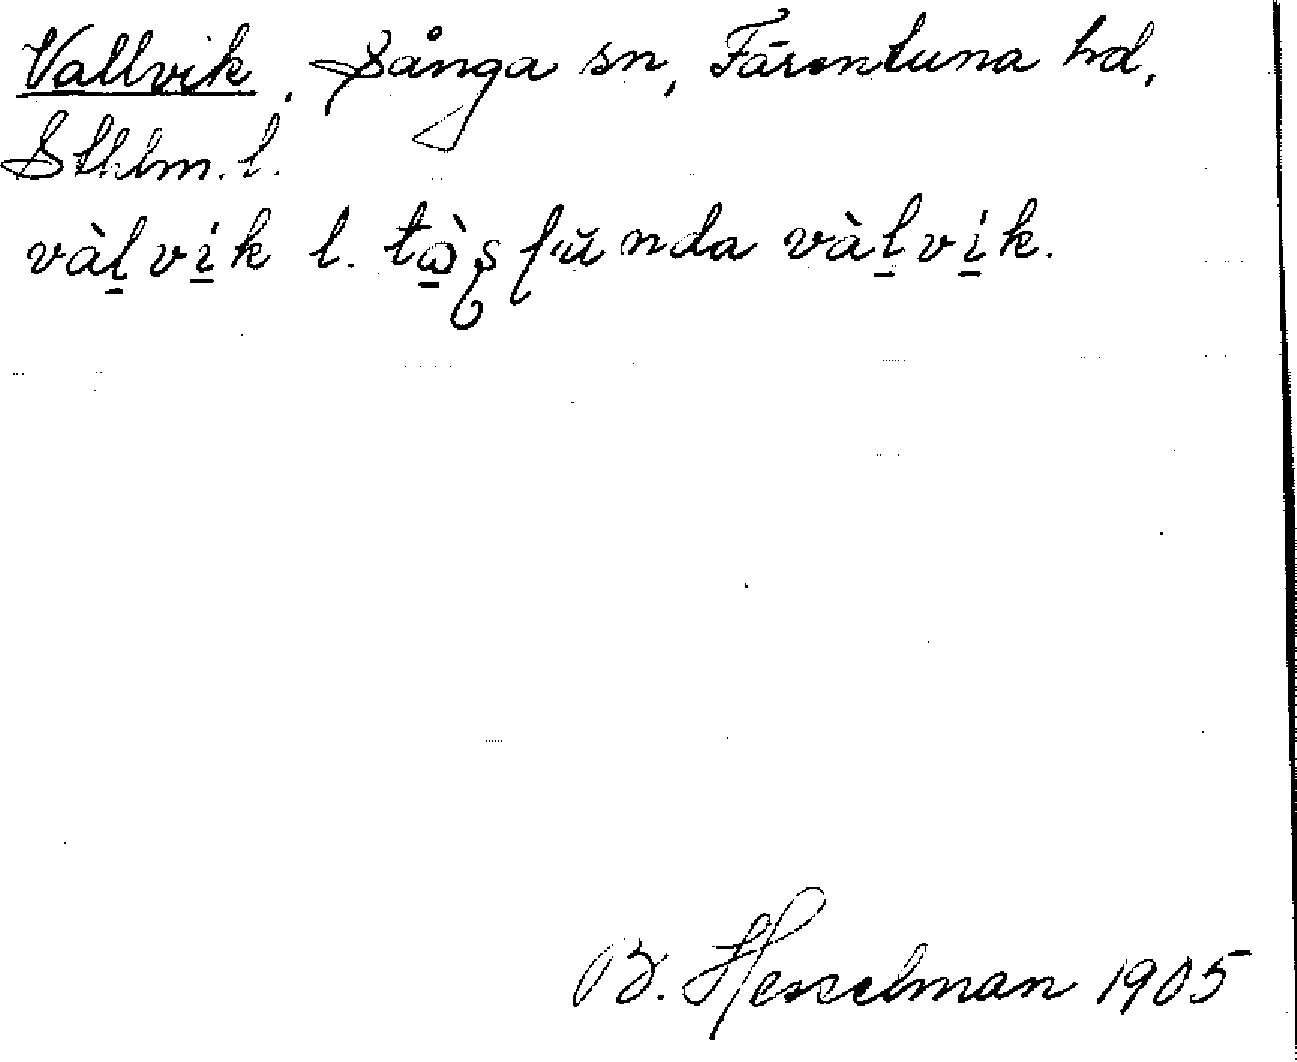 Vallvik, Sånga sn, Färentuna hd,
Sthlm. l.
vàl̠vi̠k l. tà̠ʂfŭnda vàl̠vi̠k.
B. Hesselman 1905